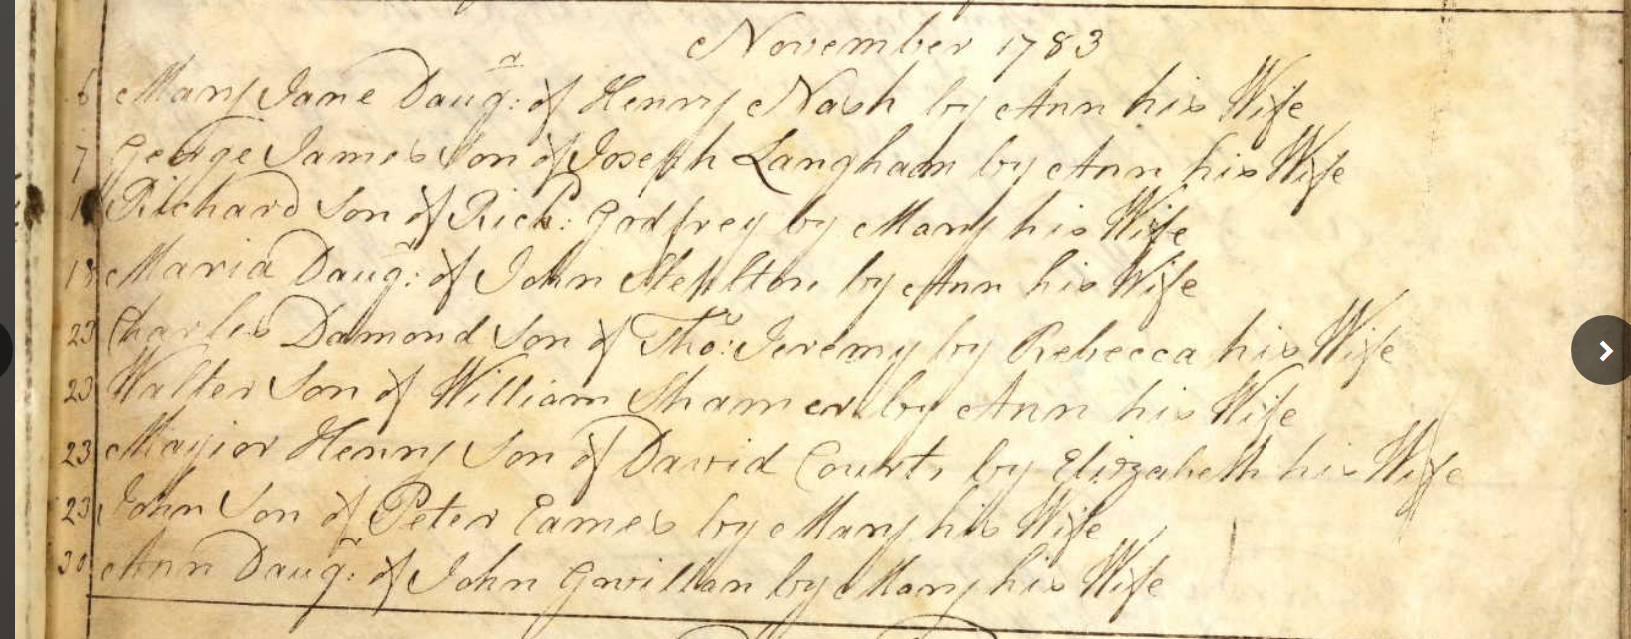 November 1783
6 Mary Jane Daugr: of Henry Nash by Ann his Wife
7 George James Son of Joseph Langham by Ann his Wife
Richard Son of Richd: Godfrey by Mary his Wife
18 Maria Daugr: of John by Ann his Wife
23 Charles Damond Son of Thos: Jeremy by Rebecca his Wife
23 Walter Son of William by Ann his Wife
23 Mayjor Henry Son of David Courts by Elizabeth his Wife
23 John Son of Peter Eames by Mary his Wife
30 Ann Daugr: of John Gwillan by Mary his Wife